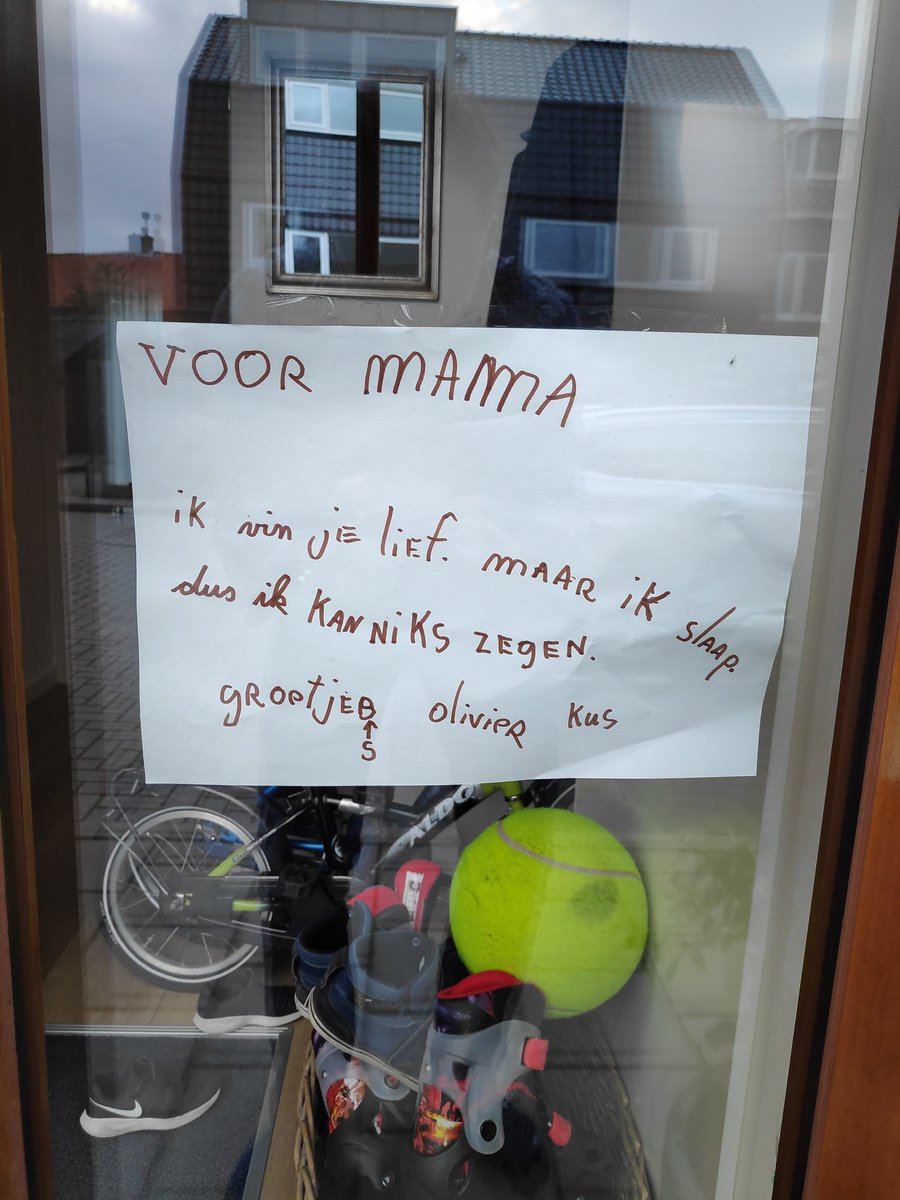 VOOR MAMMA
ik vin je lief. maar ik slaap.
dus ik kan niks zegen.
groetjeB olivier kus
↑
S
ALDO